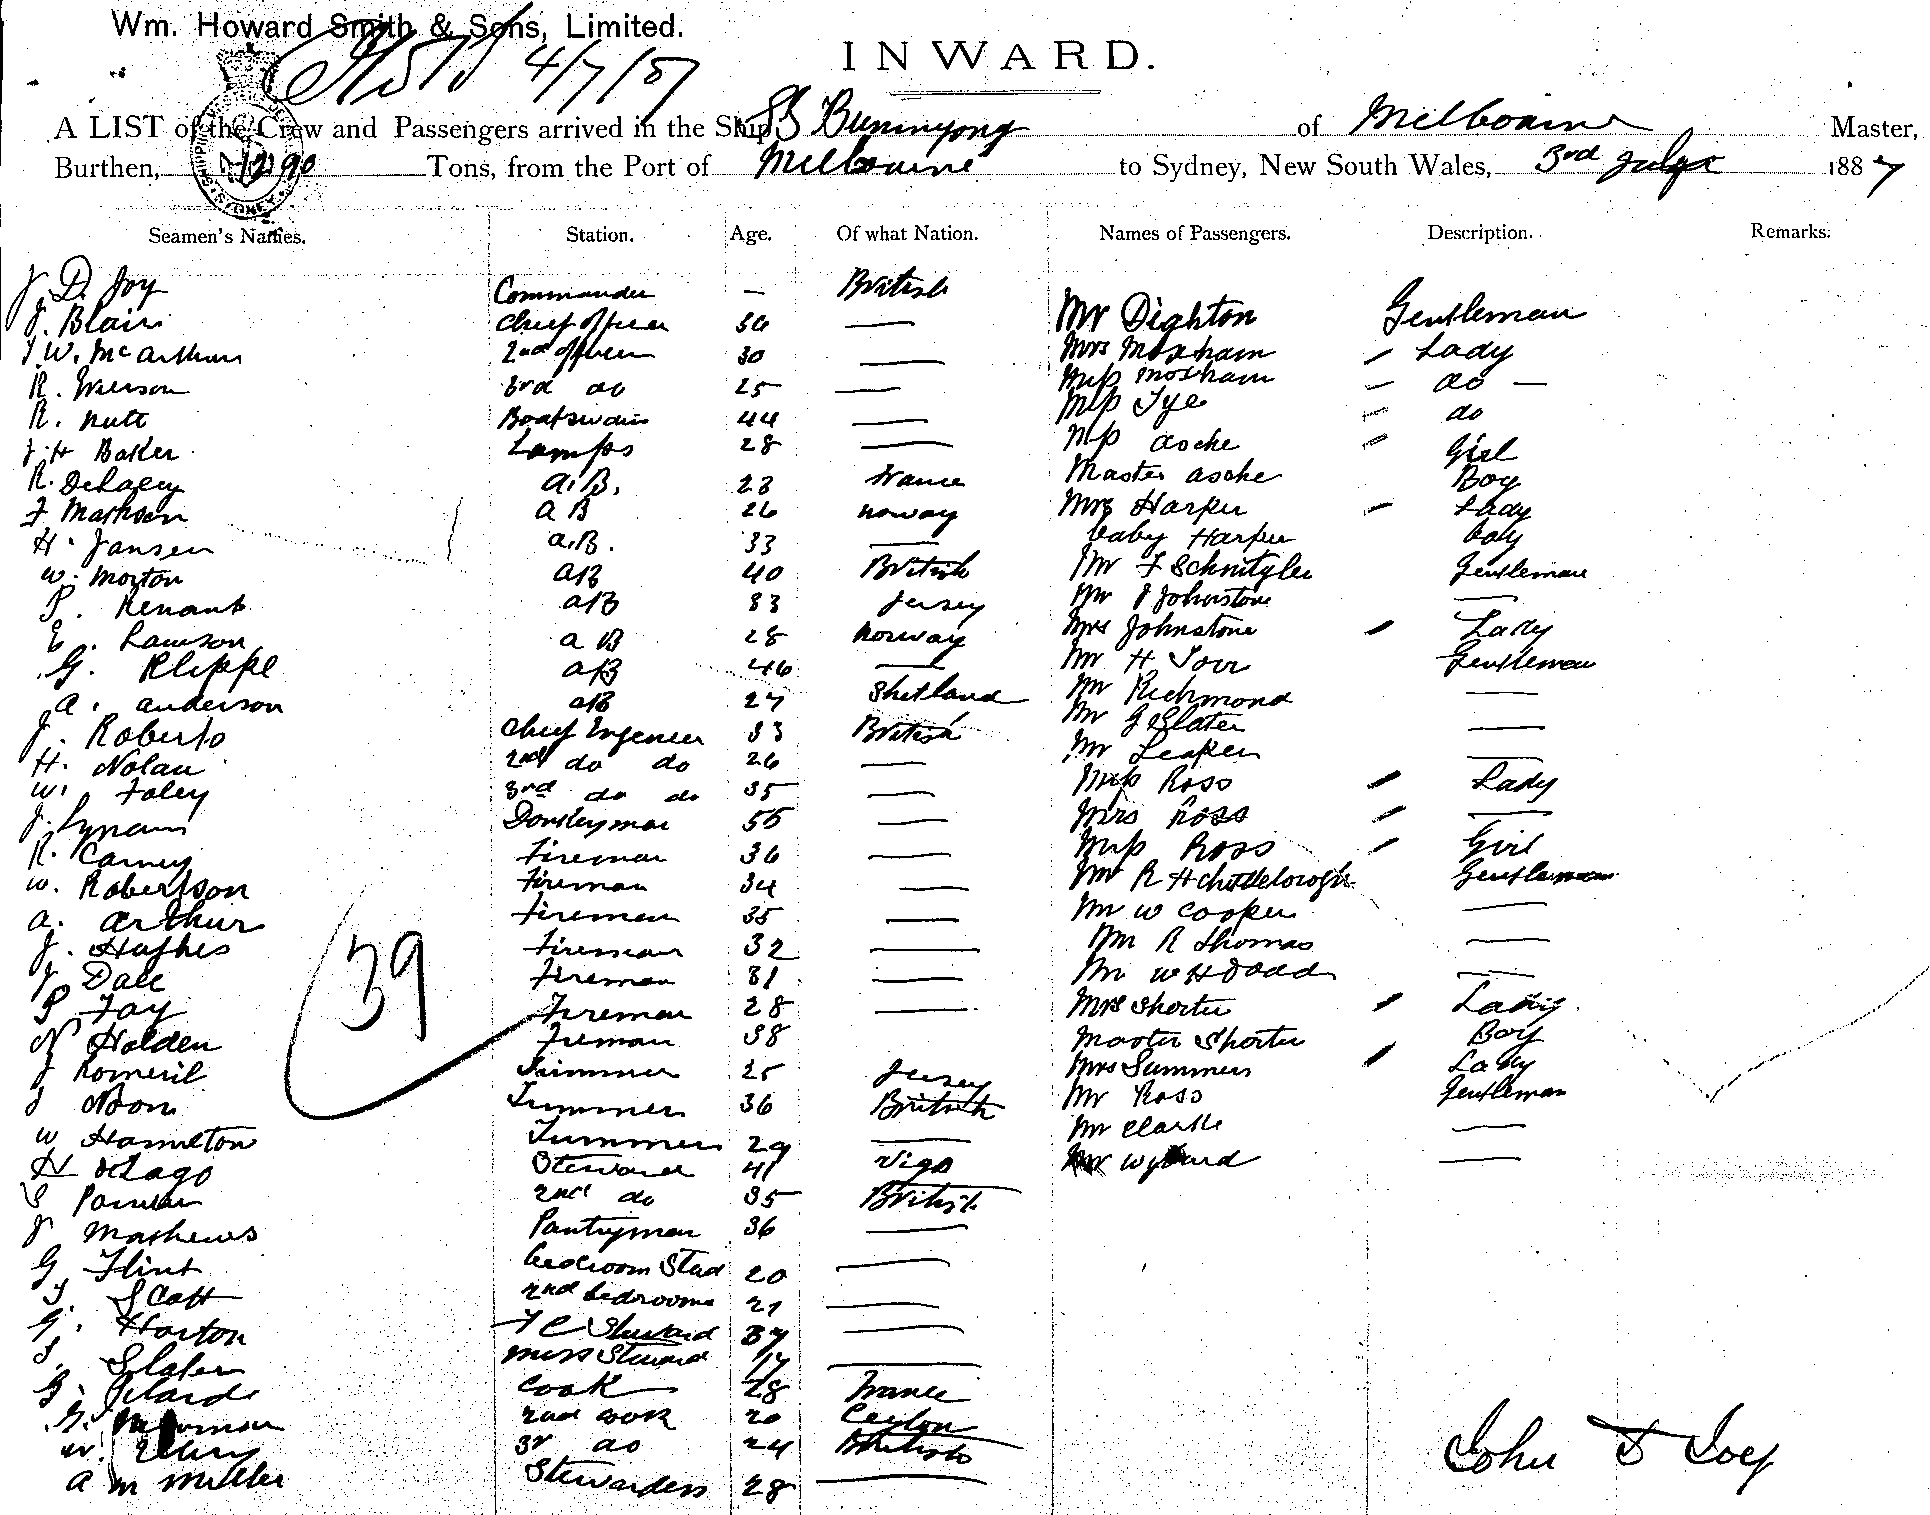 Wm. Howard Smith & Sons, Limited.
4/7/87
INWARD.
A LIST of the Crew and Passengers arrived in the Ship SS Buninyong of Melbourne Master,
Burthen, 1290 Tons, from the Port of Melbourne to Sydney, New South Wales, 3rd July 1887
Seamen's Names. Station. Age. Of what Nation. Names of Passengers. Description. Remarks.
J. D. Joy Commander — British
J. Blair Chief officer 36 — Mr Dighton Gentleman
J. W. McArthur 2nd officer 30 — Mrs Moxham Lady
R. 3rd do 25 — Miss Moxham do —
R. Nutt Boatswain 44 — Miss Tye do
J. H Baker Lamps 28 — Miss Asche Girl
R. Delacey A.B. 23 France Master Asche Boy
F Markson AB 26 Noway Mrs Harper Lady
H. Jansen A.B. 33 — baby Harper baby
W. Morton AB 40 British Mr F Schnitzler Gentleman
P. Renault AB 33 Jersey Mr J Johnstone —
E. Lawson AB 28 Norway Mrs Johnstone Lady
G. Kleppe AB 46 — Mr H Torr Gentleman
A. Anderson AB 27 Shetland Mr Richmond —
J. Roberts Chief Engeneer 33 British Mr J Slater —
H. Nolan 2nd do do 26 — Mr Leaper —
W. Foley 3rd do do 35 — Miss Ross Lady
J. Lynam Donkeyman 55 — Mrs Ross —
R. Carney Fireman 36 — Miss Ross Girl
W. Robertson Fireman 34 — Mr R H Chittleborough Gentleman
A. Arthur Fireman 35 — Mr W Cooper —
J. Hughes Fireman 32 — Mr R Thomas —
J Dale Fireman 31 — Mr W H Dodd —
P Fay Fireman 28 — Mrs Shorter Lady
N Holden Fireman 38 Master Shorter Boy
J Romeril Trimmer 25 Jersey Mrs Summers Lady
J Noon Trimmer 36 British Mr Ross Gentleman
W Hamilton Trimmer 29 — Mr Clarke —
H Lago Steward 41 Vigo Mr Wyburd —
S 2nd do 35 British
J Mathews Pantryman 36 —
G Flint bedroom Stud 20 —
J Scott 2nd bedrooms 21 —
G. Horton F C Steward 37 —
J. Slater mess Steward 17 —
G. Cook 28 France
2nd cook 20 Ceylon
W. 3r do 24 British
A M Miller Stewardess 28 —
39
John D Joy